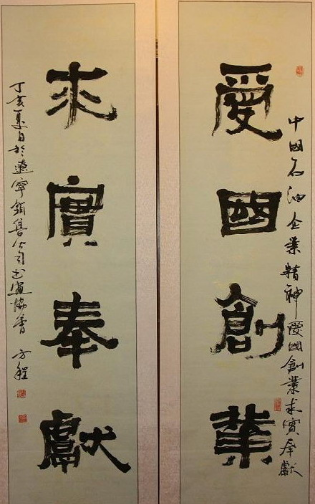 中國石油企業精神愛國創業求實奉獻
愛國創業
求實奉獻
丁亥夏日於遼寧銷售公司
方程